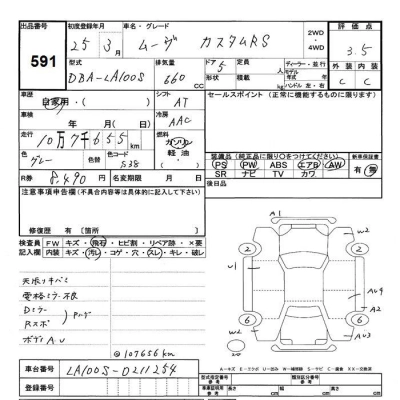 出品番号 591
初度登録年月 25年 3月
車名・グレード ムーヴ カスタムRS
2WD
・4WD
評価点 3.5
型式 DBA-LA100S
排気量 660 CC
ドア 5
定員
形状
積載 kg
ディーラー・並行
モデル年式
ハンドル 左・右
外装 内装
C C
車歴 自家用・( )
シフト AT
セールスポイント(正常に機能するものに限ります)
車検 年 月 日
冷房 AAC
走行 10万7千655 km
燃料 ガソリン
軽油・
色 グレー
色替
色コード S38
R券 8,490 円
名変期限 月 日
装備品(純正品に限り○をつけてください)
PS PW ABS エアB AW
SR ナビ TV カワ
新車保証書
有 無
注意事項申告欄(不具合内容等は具体的に記入して下さい)
後日品
修復歴 有〔箇所
検査員記入欄
FW キズ・飛石・ヒビ割・リペア跡・×要
内装 キズ・汚レ・コゲ・穴・スレ・キレ・破レ
天張りキバミ
電格ミラー不良
Dミラー
Rスポ
ボディAU
@107656km
A1
W2
2 2
U1
AU9
A2
6 6
W2
AU3
20
A－キズ E－エクボ U－凹み W－補修跡 S－サビ C－腐食 XX－交換済
車台番号 LA100S-0211254
登録番号
型式指定番号
類別区分番号
参考
長さ cm
幅 cm
高さ cm